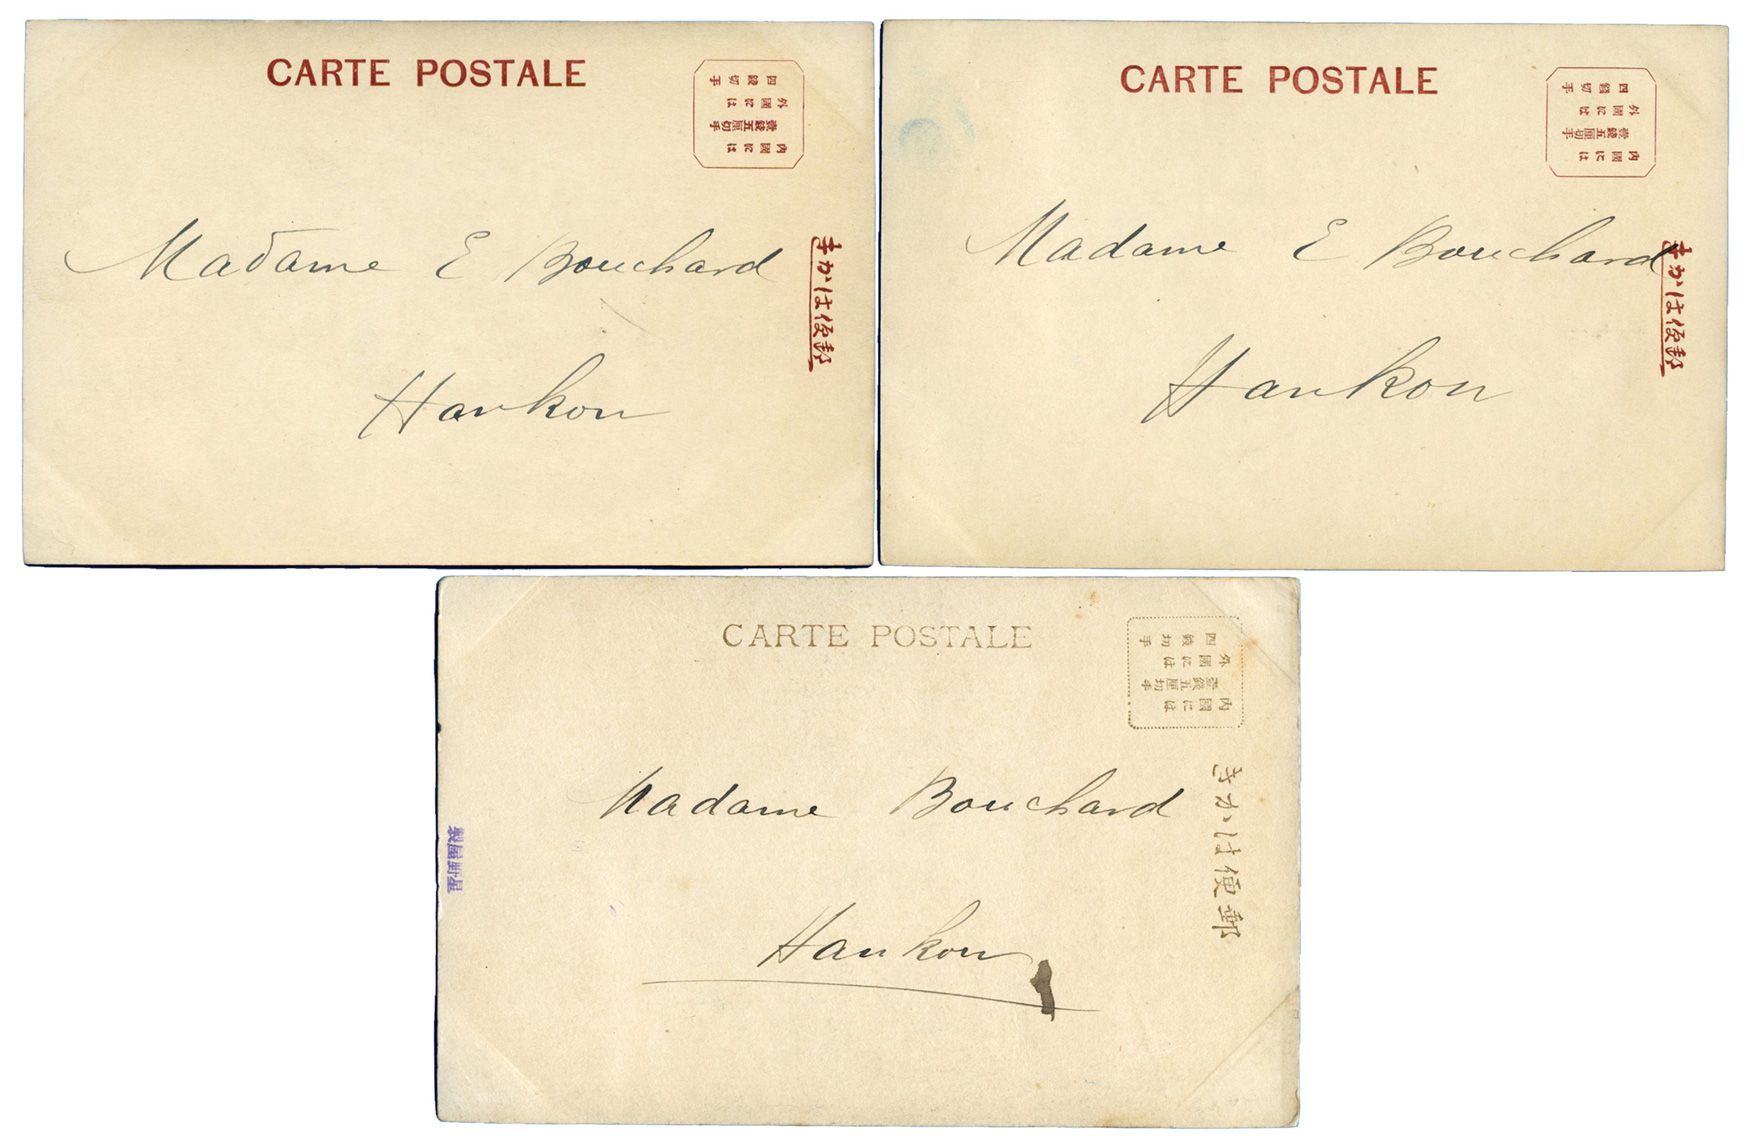 CARTE POSTALE
内國には
壹錢五厘切手
外國には
四錢切手
郵便はかき
Madame E Bouchard
Hankou
CARTE POSTALE
内國には
壹錢五厘切手
外國には
四錢切手
郵便はかき
Madame E Bouchard
Hankou
CARTE POSTALE
内國には
壹錢五厘切手
外國には
四錢切手
郵便はかき
Madame Bouchard
Hankou
星野屋製